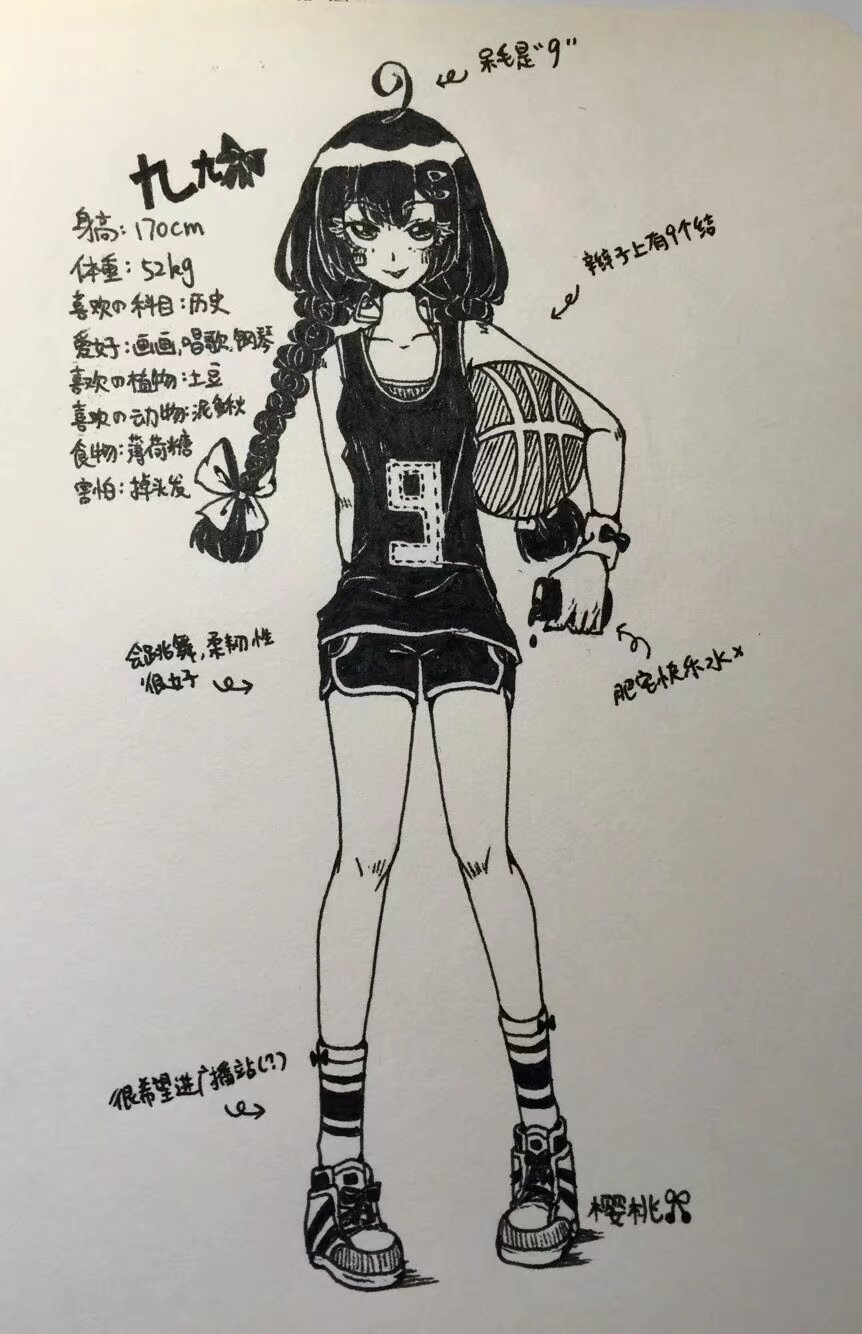 呆毛是"9"
九九
身高:170cm
体重:52kg
喜欢の科目:历史
爱好:画画,唱歌,钢琴
喜欢の植物:土豆
喜欢の动物:泥鳅
食物:薄荷糖
害怕:掉头发
辫子上有9个结
9
会跳舞,柔韧性
很好
肥宅快乐水x
很希望进广播站(?)
樱桃